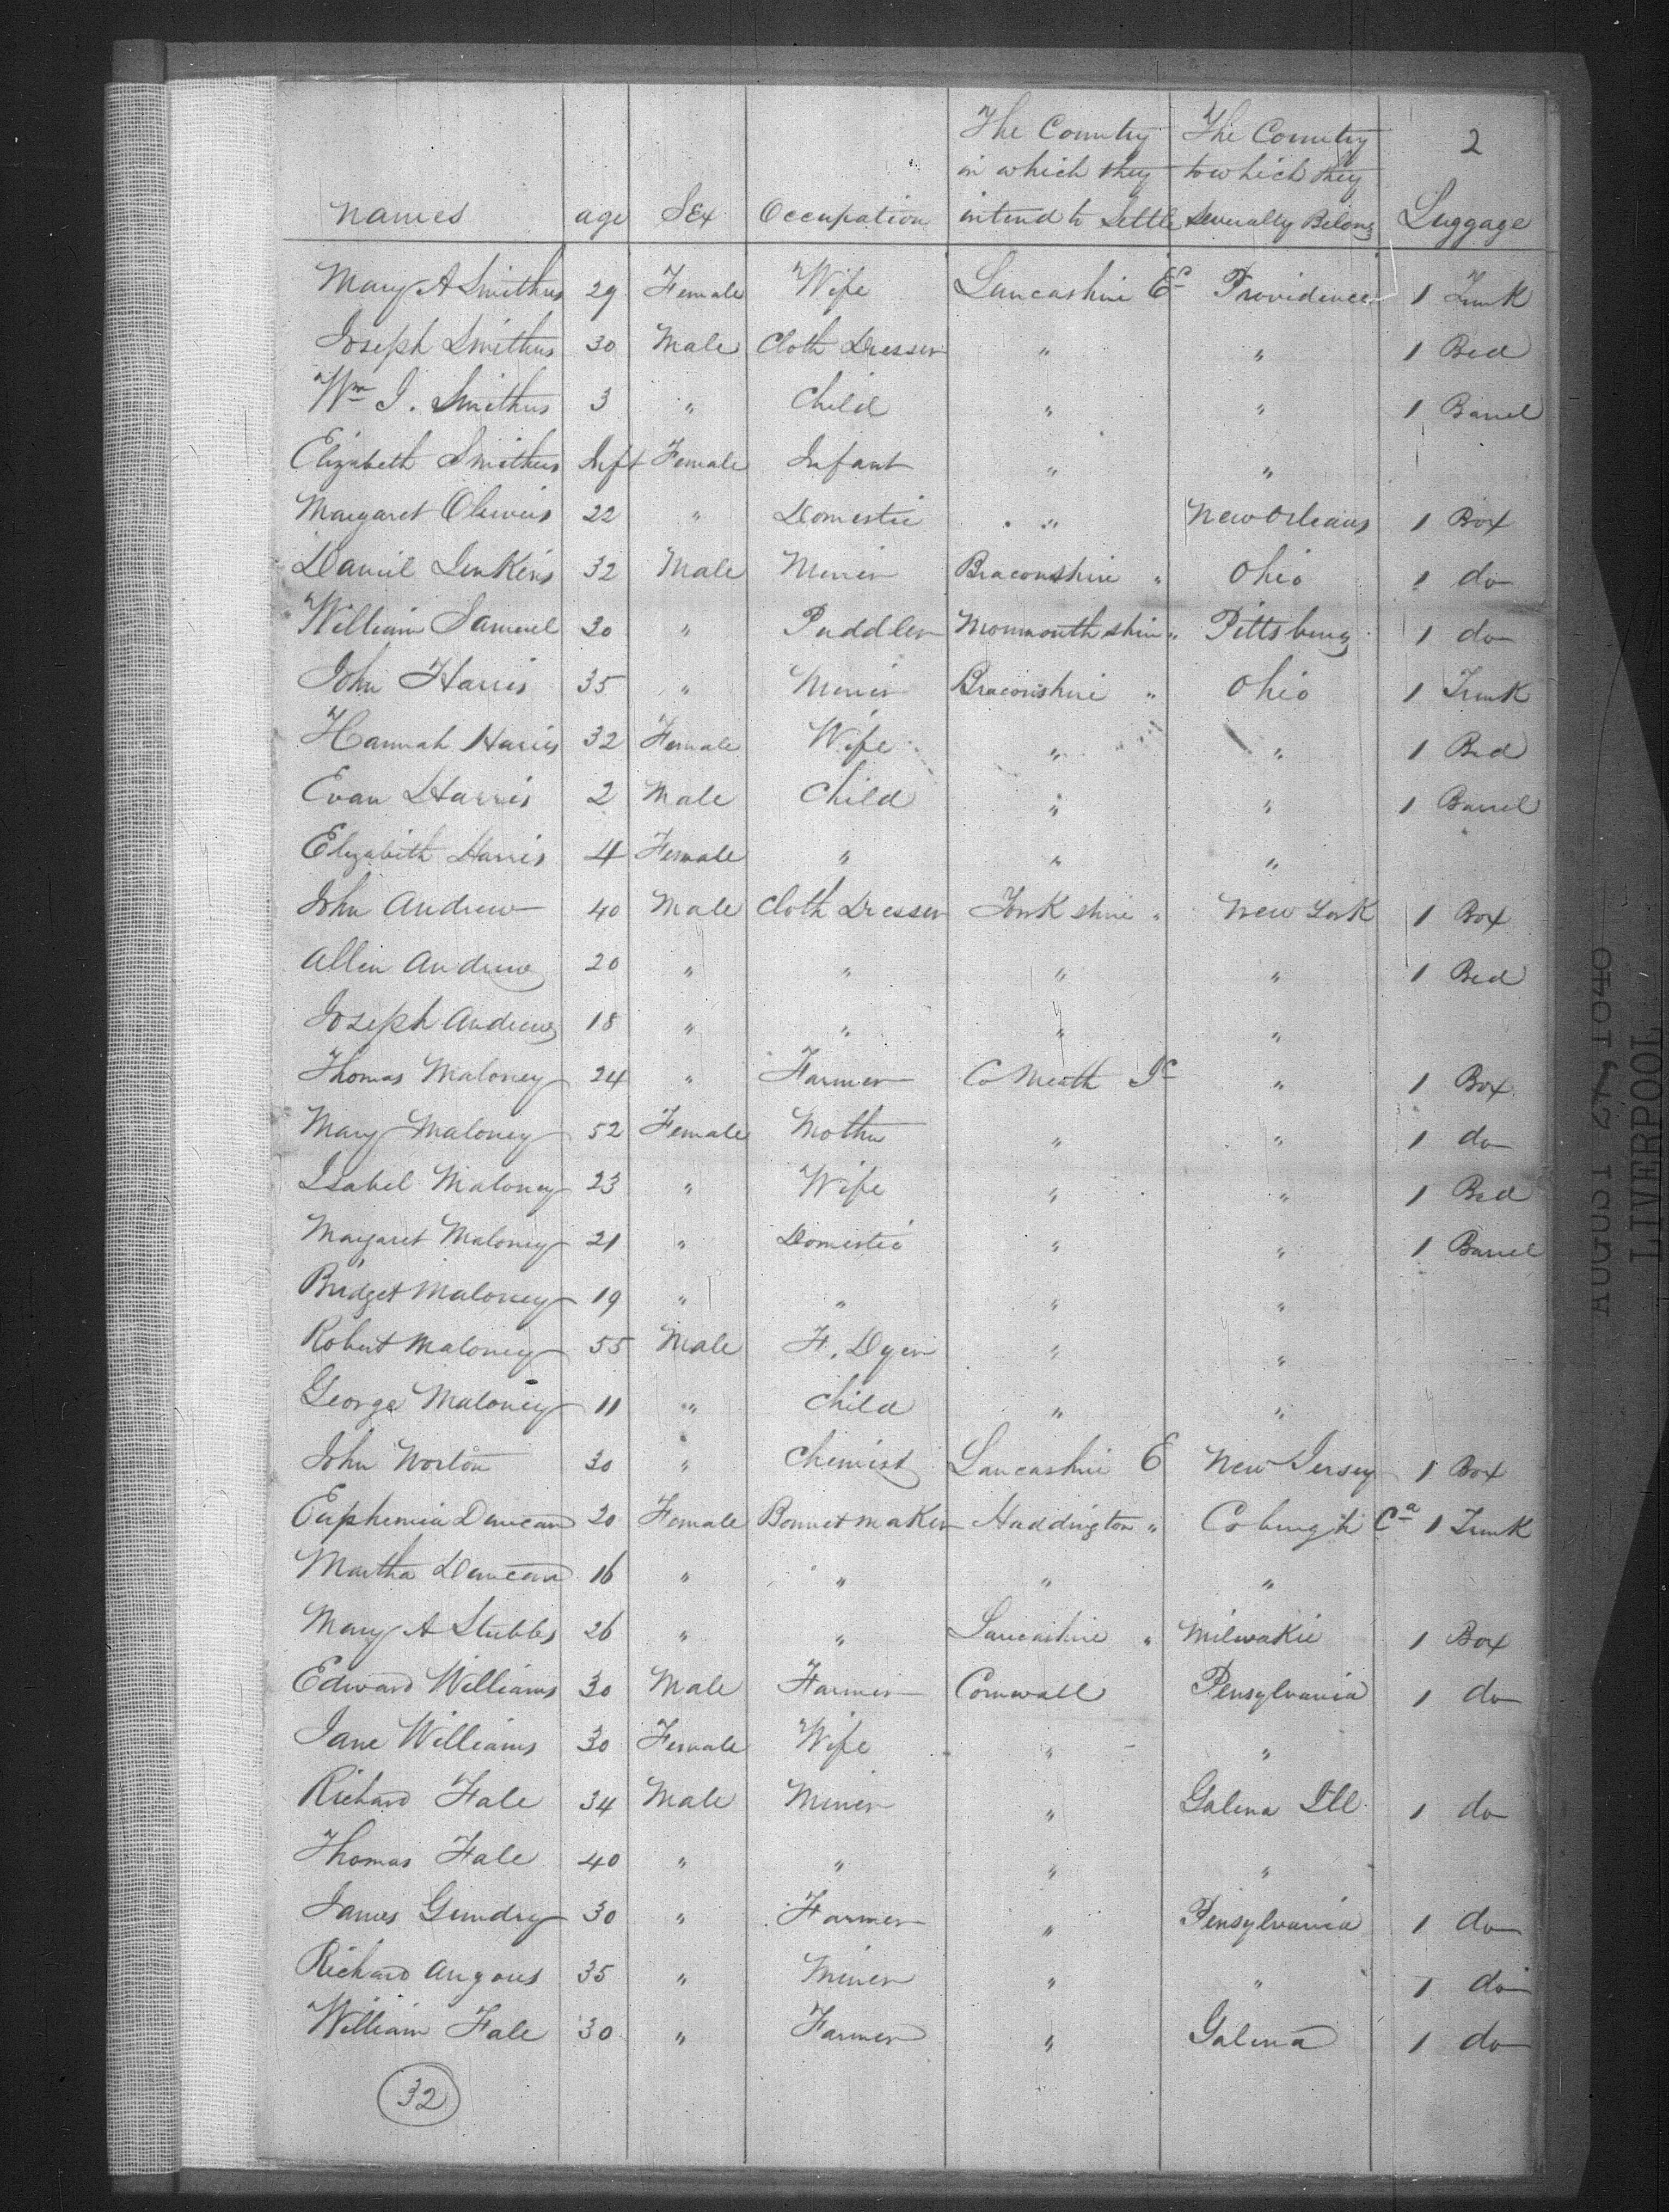 2
names age Sex Occupation The Country in which they intend to Settle The Country to which they Severally Belong Luggage
Mary A Smithus 29 Female Wife Lancashire Ed Providence 1 Trunk
Joseph Smithus 30 Male Cloth Dresser " " 1 Bed
Wm J. Smithus 3 " Child " " 1 Barrel
Elizabeth Smithus Inft Female Infant " "
Margaret 22 " Domestic " New Orleans 1 Box
Daniel Jenkins 32 Male Miner Braconshire " Ohio 1 do
William Samuel 30 " Puddler Monmouthshire " Pittsburg 1 do
John Harris 35 " Miner Braconshire " Ohio 1 Trunk
Hannah Harris 32 Female Wife " " 1 Bed
Evan Harris 2 Male Child " " 1 Barrel
Elizabith Harris 4 Female " " "
John Andrew 40 Male Cloth Dresser York shire " New York 1 Box
Allen Andrew 20 " " " " 1 Bed
Joseph Andrew 18 " " " "
Thomas Maloney 24 " Farmer Co Meath Id " 1 Box
Mary Maloney 52 Female Mother " " 1 do
Isabel Maloney 23 " Wife " " 1 Bed
Margaret Maloney 21 " Domestic " " 1 Barrel
Bridget Maloney 19 " " " "
Robert Maloney 55 Male F. Dyer " "
George Maloney 11 " Child " "
John Worton 30 " Chemist Lancashire E New Jersey 1 Box
Euphemia Duncan 20 Female Bonnet maker Haddington " Coburgh Ca 1 Trunk
Martha Duncan 16 " " " "
Mary A Stubbs 26 " " Lancashire " Milwakie 1 Box
Edward Williams 30 Male Farmer Cornwall Pensylvania 1 do
Jane Williams 30 Female Wife " "
Richard Hale 34 Male Miner " Galena Ill 1 do
Thomas Hale 40 " " " "
James Gundry 30 " Farmer " Pensylvania 1 do
Richard Angous 35 " Miner " " 1 do
William Hale 30 " Farmer " Galena 1 do
32
LIVERPOOL